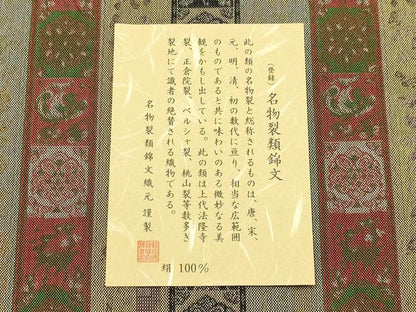 （登録）名物裂類錦文
此の類の名物裂と総称されるものは、唐、宋、
元、明、清、初の数代に亘り、相当な広範囲
のものであると共に味わいのある微妙なる美
観をかもし出している。此の類は上代法隆寺
裂、正倉院裂、ペルシャ裂、桃山裂等数多き
裂地にて識者の絶賛される織物である。
名物裂類錦文織元 謹製
絹 100%